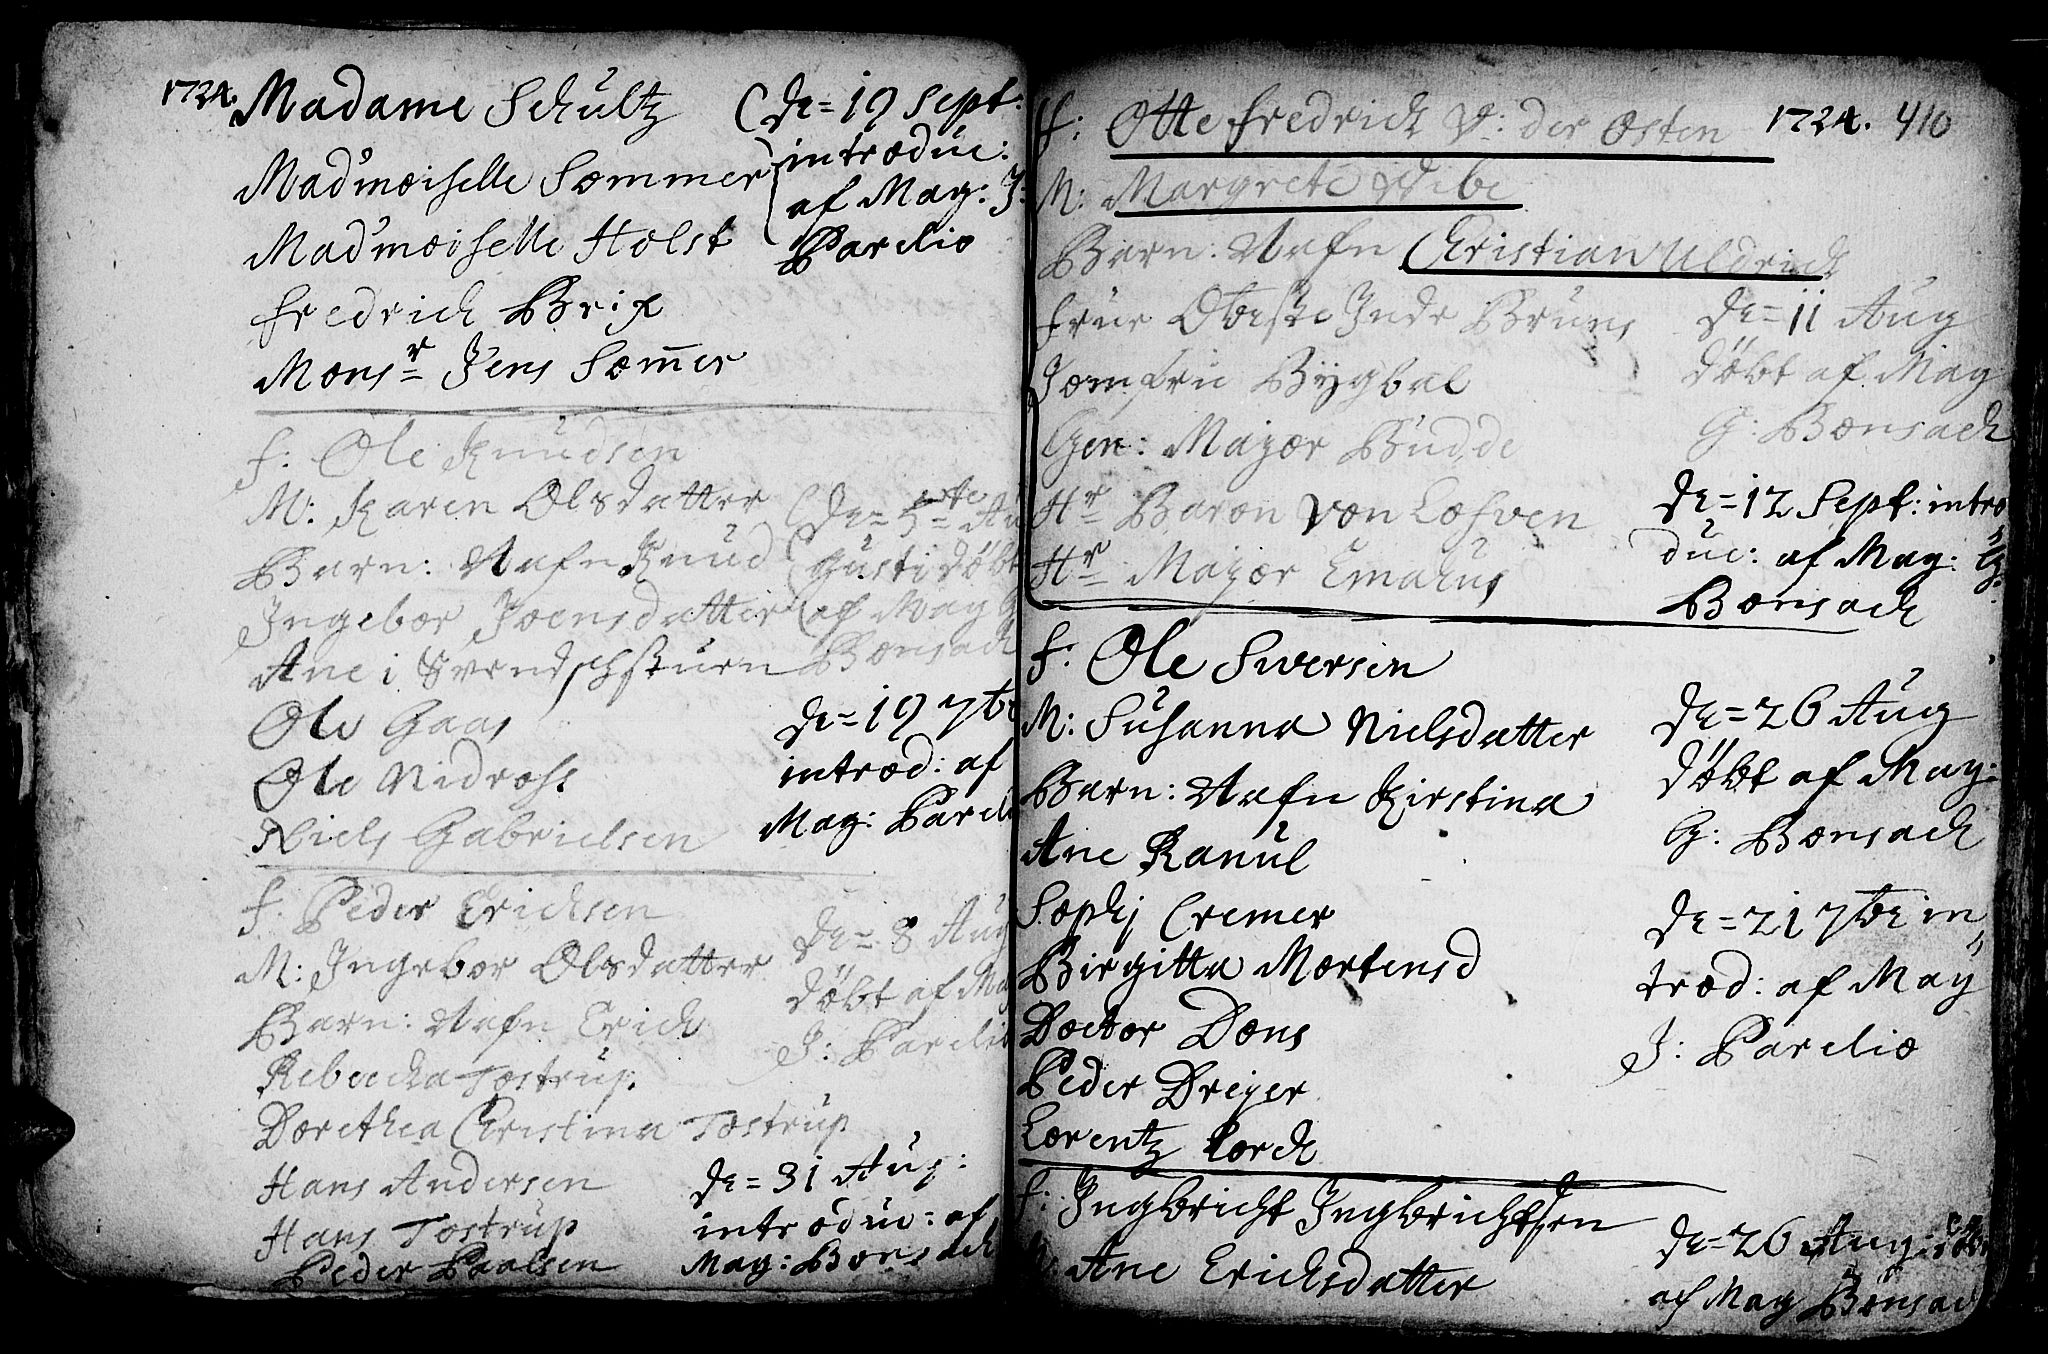 1724.
Madame Schultz
Mad'moiselle Sommer
Mad'moiselle Holst
Fredrich Brix
Mons.r Jens Som̄er
de = 19 Sept:
introduc:
af Mag: J:
Parelio
F: Ole Knudsen
M: Karen Olsdatter
Barn: Nafn Knud
Ingebor Joensdatter
Ane i
Ole Gaas
Ole Nidross
Niels Gabrielsen
de = 5te Au
gusti döbt
af Mag G
Bonsach
de = 19 7br
introd: af
Mag: Pareli
F: Peder Erichsen
M: Ingebor Olsdatter
Barn: Nafn Erich
Rebecka Tostrup
Dorethea Christina Tostrup
Hans Andersen
Hans Tostrup
Peder Paalsen
de = 8 Aug
döbt af Mag
J: Parelio
de = 31 Aug:
introduc: af
Mag: Bonsach
1724. 410
F: Otte Fredrich V: der Osten
M: Margrete Vibe
Barn: Nafn Christian Uldrich
Frue Obeste Inde Bruns
Jomfru Bygbal
Gen: Major Budde
Hr Baron von Lofven
Hr Major Emahus
de = 11 Aug
döbt af Mag
G: Bonsach
de = 12 Sept: intro
duc: af Mag: G:
Bonsach
F: Ole Siversen
M: Susanna Nielsdatter
Barn: Nafn Kirstina
Ane Ranul
Sophj Cremer
Birgitta Mortensd
Doctor Dons
Peder Dreyer
Lorentz Lorch
de = 26 Aug
döbt af Mag:
G: Bonsach
de = 21 7br in
trod: af Mag
J: Parelio
F: Ingbricht Ingbrichtsen
M: Ane Erichsdatter
de = 26 Aug: döbt
af Mag Bonsach